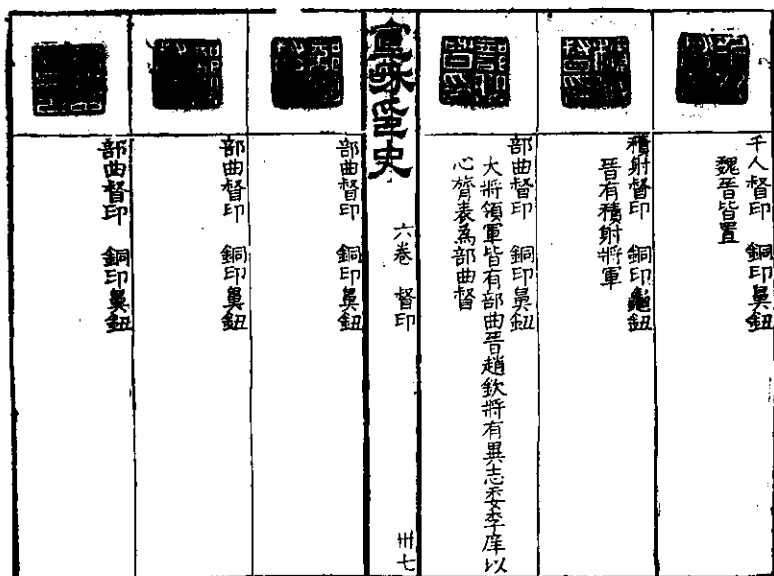 千人督印　銅印鼻鈕
魏晉皆置
積射督印　銅印龜鈕
晉有積射將軍
部曲督印　銅印鼻鈕
大將領軍皆有部曲晉趙欽將有異志委李庠以
心膂表為部曲督
宣和印史　六卷　督印　卅七
部曲督印　銅印鼻鈕
部曲督印　銅印鼻鈕
部曲督印　銅印鼻鈕